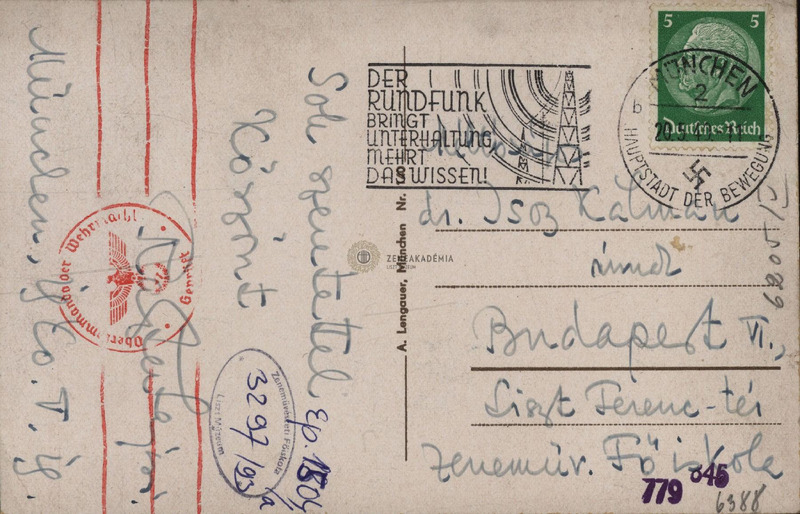 München, 
Sok szeretettel
Köszönt
DER
RUNDFUNK
BRINGT
UNTERHALTUNG
MEHRT
DAS WISSEN!
MÜNCHEN
2
b
HAUPTSTADT DER BEWEGUNG
5 5
Deutsches Reich
dr. Isoz Kálmán
úrnak
Budapest VI.,
Liszt Ferenc-tér
zeneműv. Főiskola
A. Lengauer, München Nr.
ZENEAKADÉMIA
LISZT MÚZEUM
Oberkommando der Wehrmacht
Geprüft
Zeneművészeti Főiskola
3297/93
Liszt Múzeum
779 845
6388